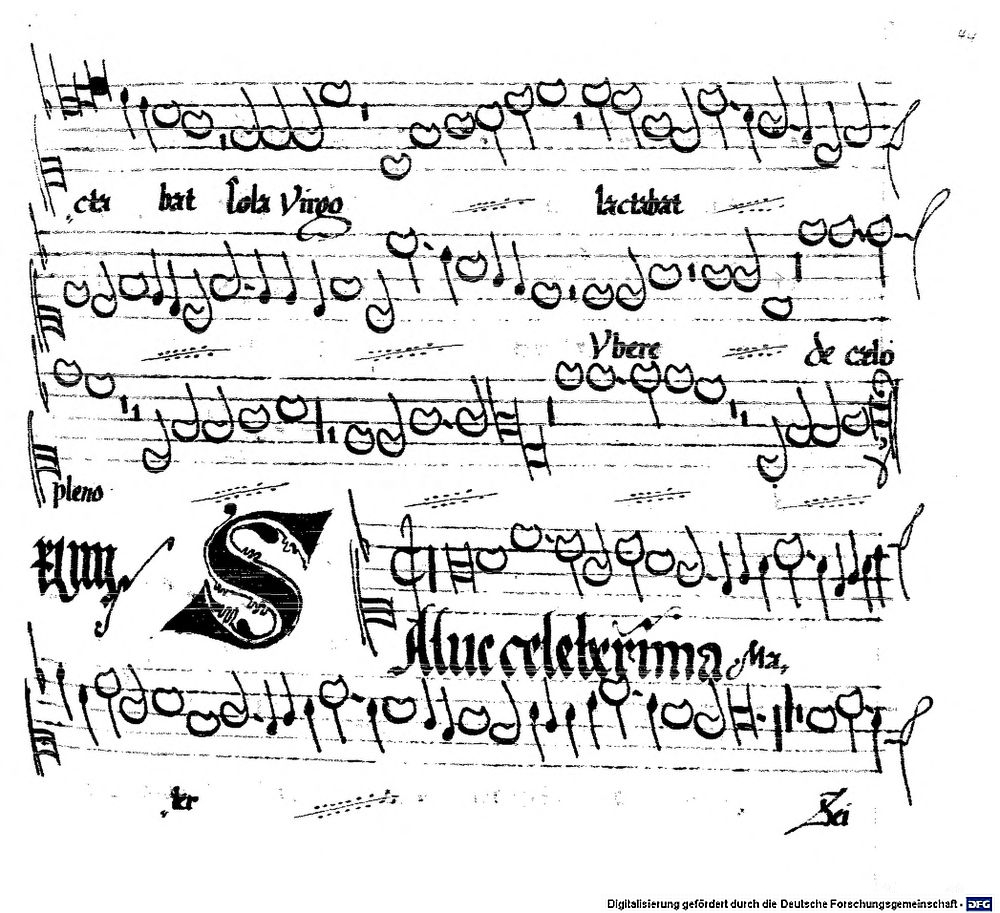 44
cta bat sola Virgo lactabat
Vbere de cælo
pleno
Salue celeberima Ma,
ter Dei
Digitalisierung gefördert durch die Deutsche Forschungsgemeinschaft - DFG